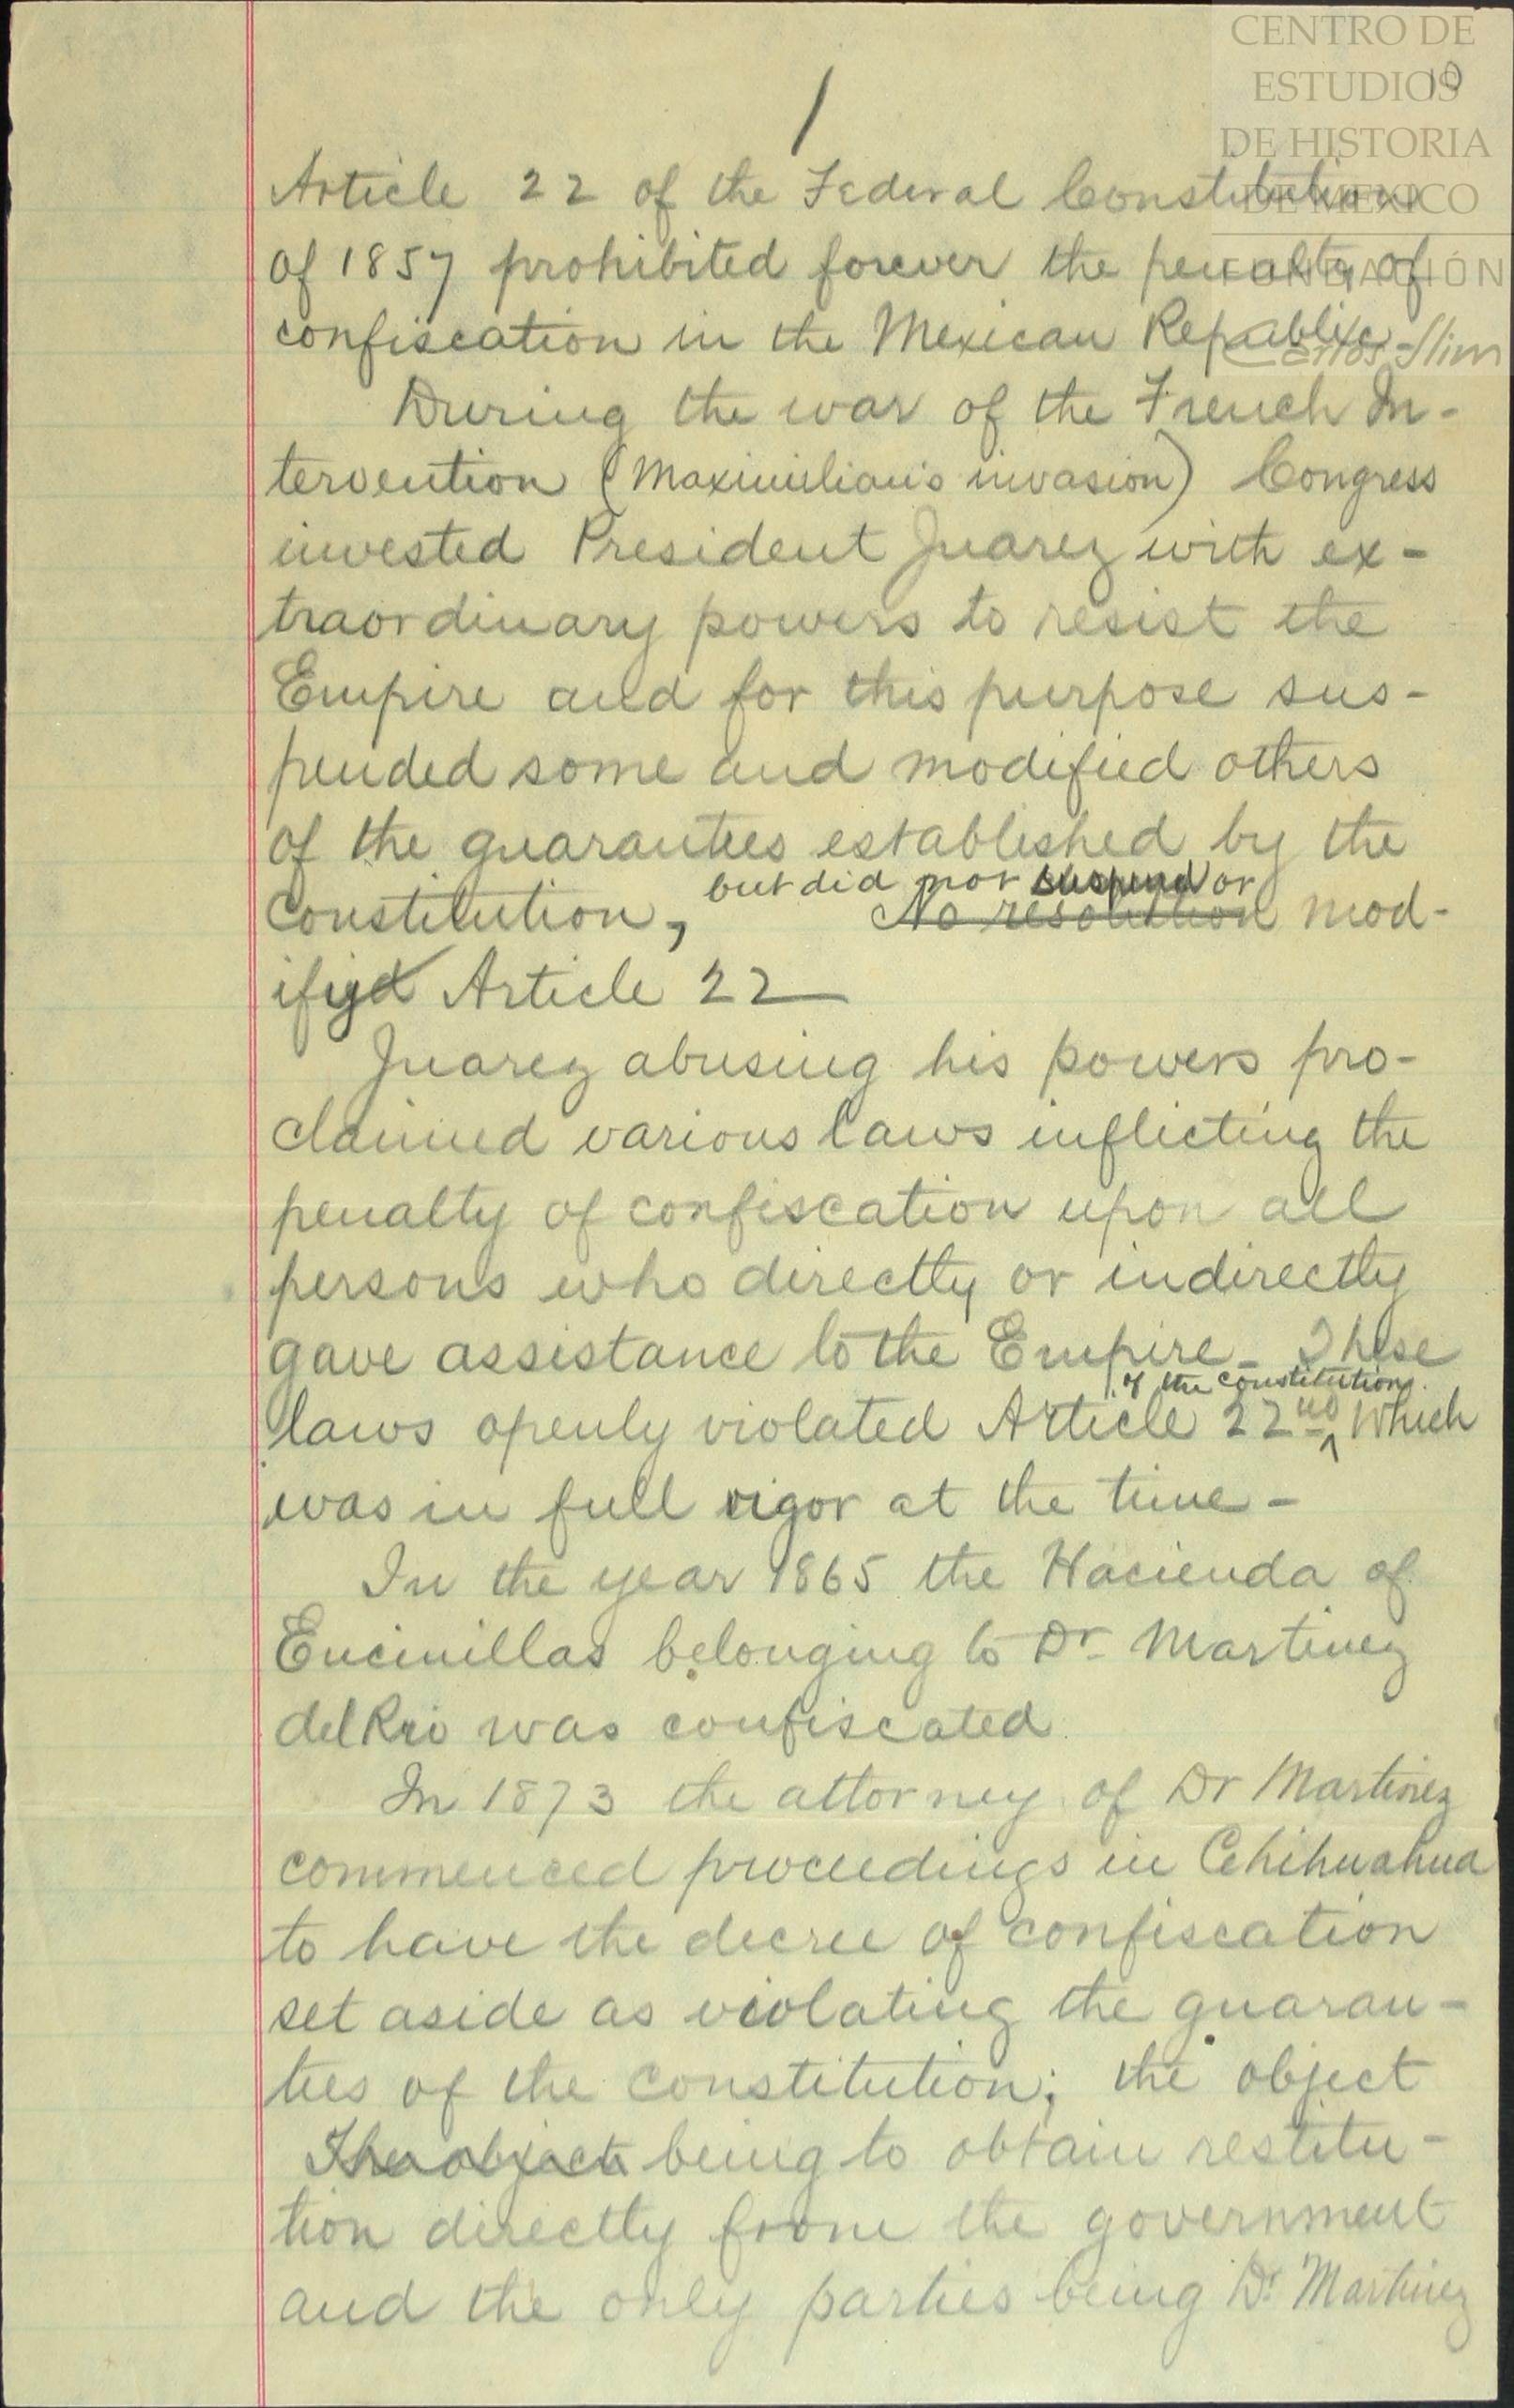 CENTRO DE
ESTUDIOS
DE HISTORIA
DE MEXICO
FUNDACIÓN
Carlos Slim
10
1
Article 22 of the Federal Constitution
of 1857 prohibited forever the penalty of
confiscation in the Mexican Republic -
During the war of the French In-
tervention (Maximilian's invasion) Congress
invested President Juarez with ex-
traordinary powers to resist the
Empire and for this purpose sus-
pended some and modified others
of the guarantees established by the
but did not suspend or
Constitution, No resolution mod-
ified Article 22
Juarez abusing his powers pro-
claimed various laws inflicting the
penalty of confiscation upon all
persons who directly or indirectly
gave assistance to the Empire - These
of the Constitution
laws openly violated Article 22nd which
was in full vigor at the time -
In the year 1865 the Hacienda of
Encinillas belonging to Dr Martinez
del Rio was confiscated
In 1873 the attorney of Dr Martinez
commenced proceedings in Chihuahua
to have the decree of confiscation
set aside as violating the guaran-
tees of the constitution; the object
The object being to obtain restitu-
tion directly from the government
and the only parties being Dr Martinez